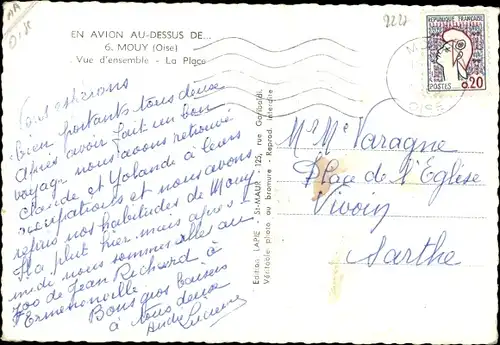 EN AVION AU-DESSUS DE...
6. MOUY (Oise)
Vue d'ensemble - La Place
Bien portants tous deux
Après avoir fait un bon
voyage nous avons retrouvé
Claude et Yolande à leurs
occupations et nous avons
repris nos habitudes de Mouy
Il a plut hier mais après-
midi nous sommes allés au
zoo de Jean Richard à
Ermenonville
Bons gros baisers
à tous deux
André Lucienne
Edition LAPIE - St-MAUR - 125, rue Garibaldi
Véritable photo au bromure - Reprod. interdite
9227
REPUBLIQUE FRANÇAISE
POSTES 0,20
OISE
M Mme Varagne
Place de l'Eglise
Vivoin
Sarthe